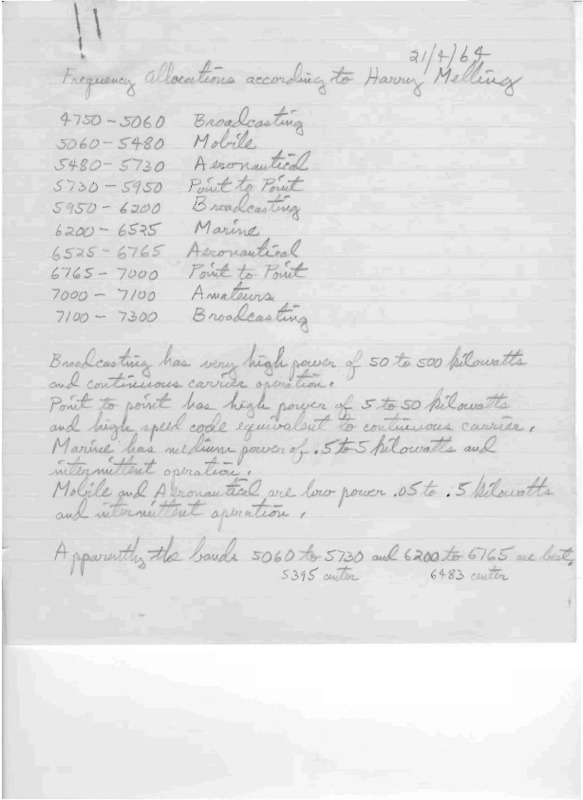 11
21/4/64
Frequency allocations according to Harry Melling
4750 - 5060 Broadcasting
5060 - 5480 Mobile
5480 - 5730 Aeronautical
5730 - 5950 Point to Point
5950 - 6200 Broadcasting
6200 - 6525 Marine
6525 - 6765 Aeronautical
6765 - 7000 Point to Point
7000 - 7100 Amateurs
7100 - 7300 Broadcasting
Broadcasting has very high power of 50 to 500 kilowatts
and continuous carrier operation.
Point to point has high power of 5 to 50 kilowatts
and high speed code equivalent to continuous carrier.
Marine has medium power of .5 to 5 kilowatts and
intermittent operation.
Mobile and Aeronautical are low power .05 to .5 kilowatts
and intermittent operation.
Apparently the bands 5060 to 5730 and 6200 to 6765 are best.
5395 center 6483 center